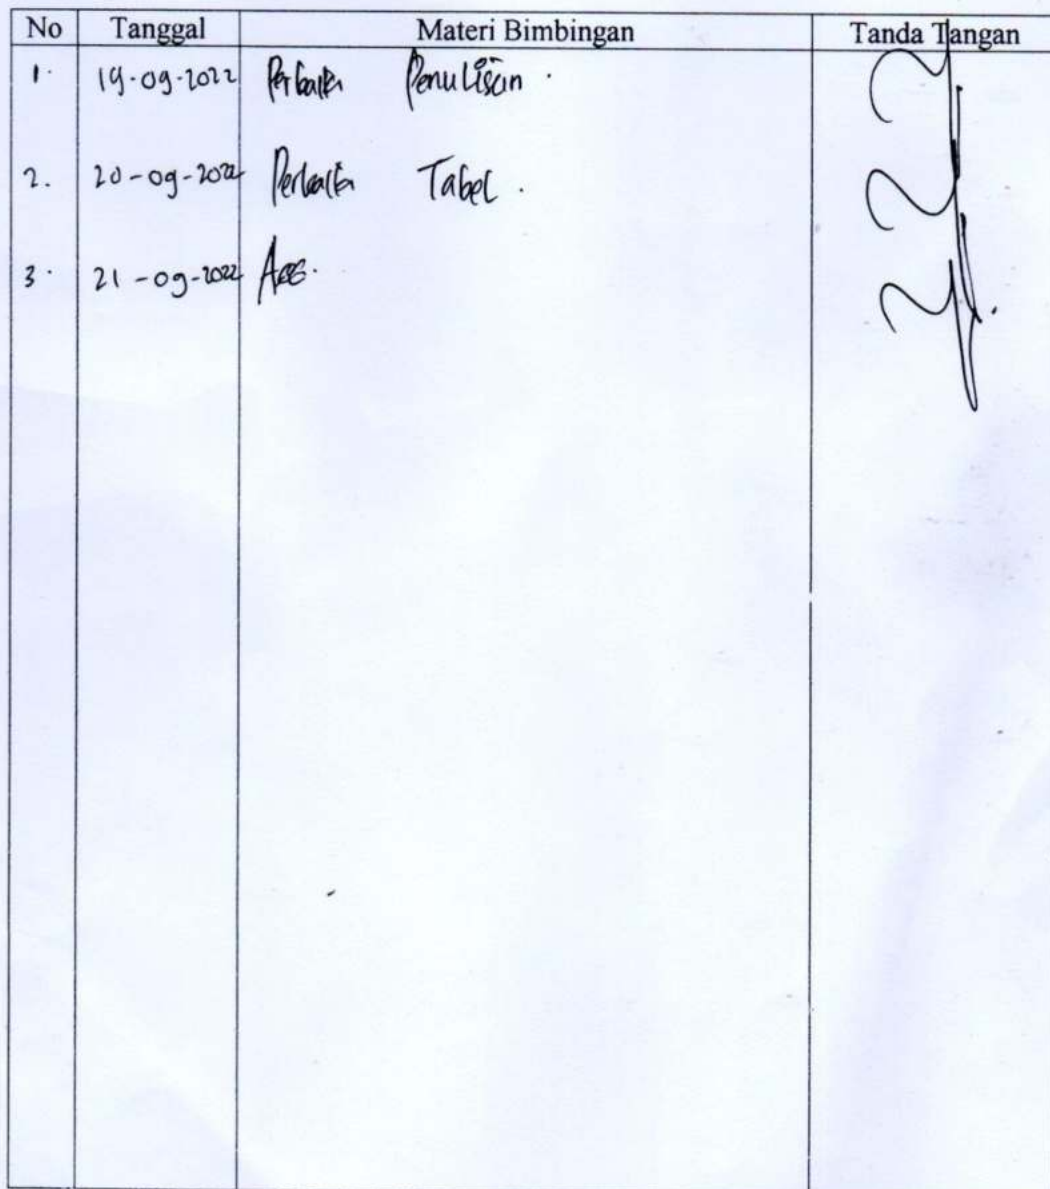 No Tanggal Materi Bimbingan Tanda Tangan
1. 19-09-2022 Perbaiki Penulisan.
2. 20-09-2022 Perbaiki Tabel.
3. 21-09-2022 Acc.